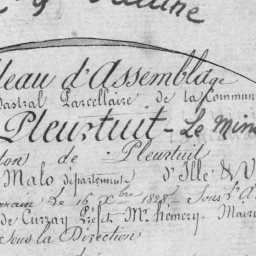 leau d'Assemblage
dastral Parcellaire de la Commun
Pleurtuit - Le Mini
ton de Pleurtuit
Malo département d'Ille & V
le 16 Xbre 1828. Sous l'A
de Curzay Préfet Mr. hemery. Maire
sous la Direction